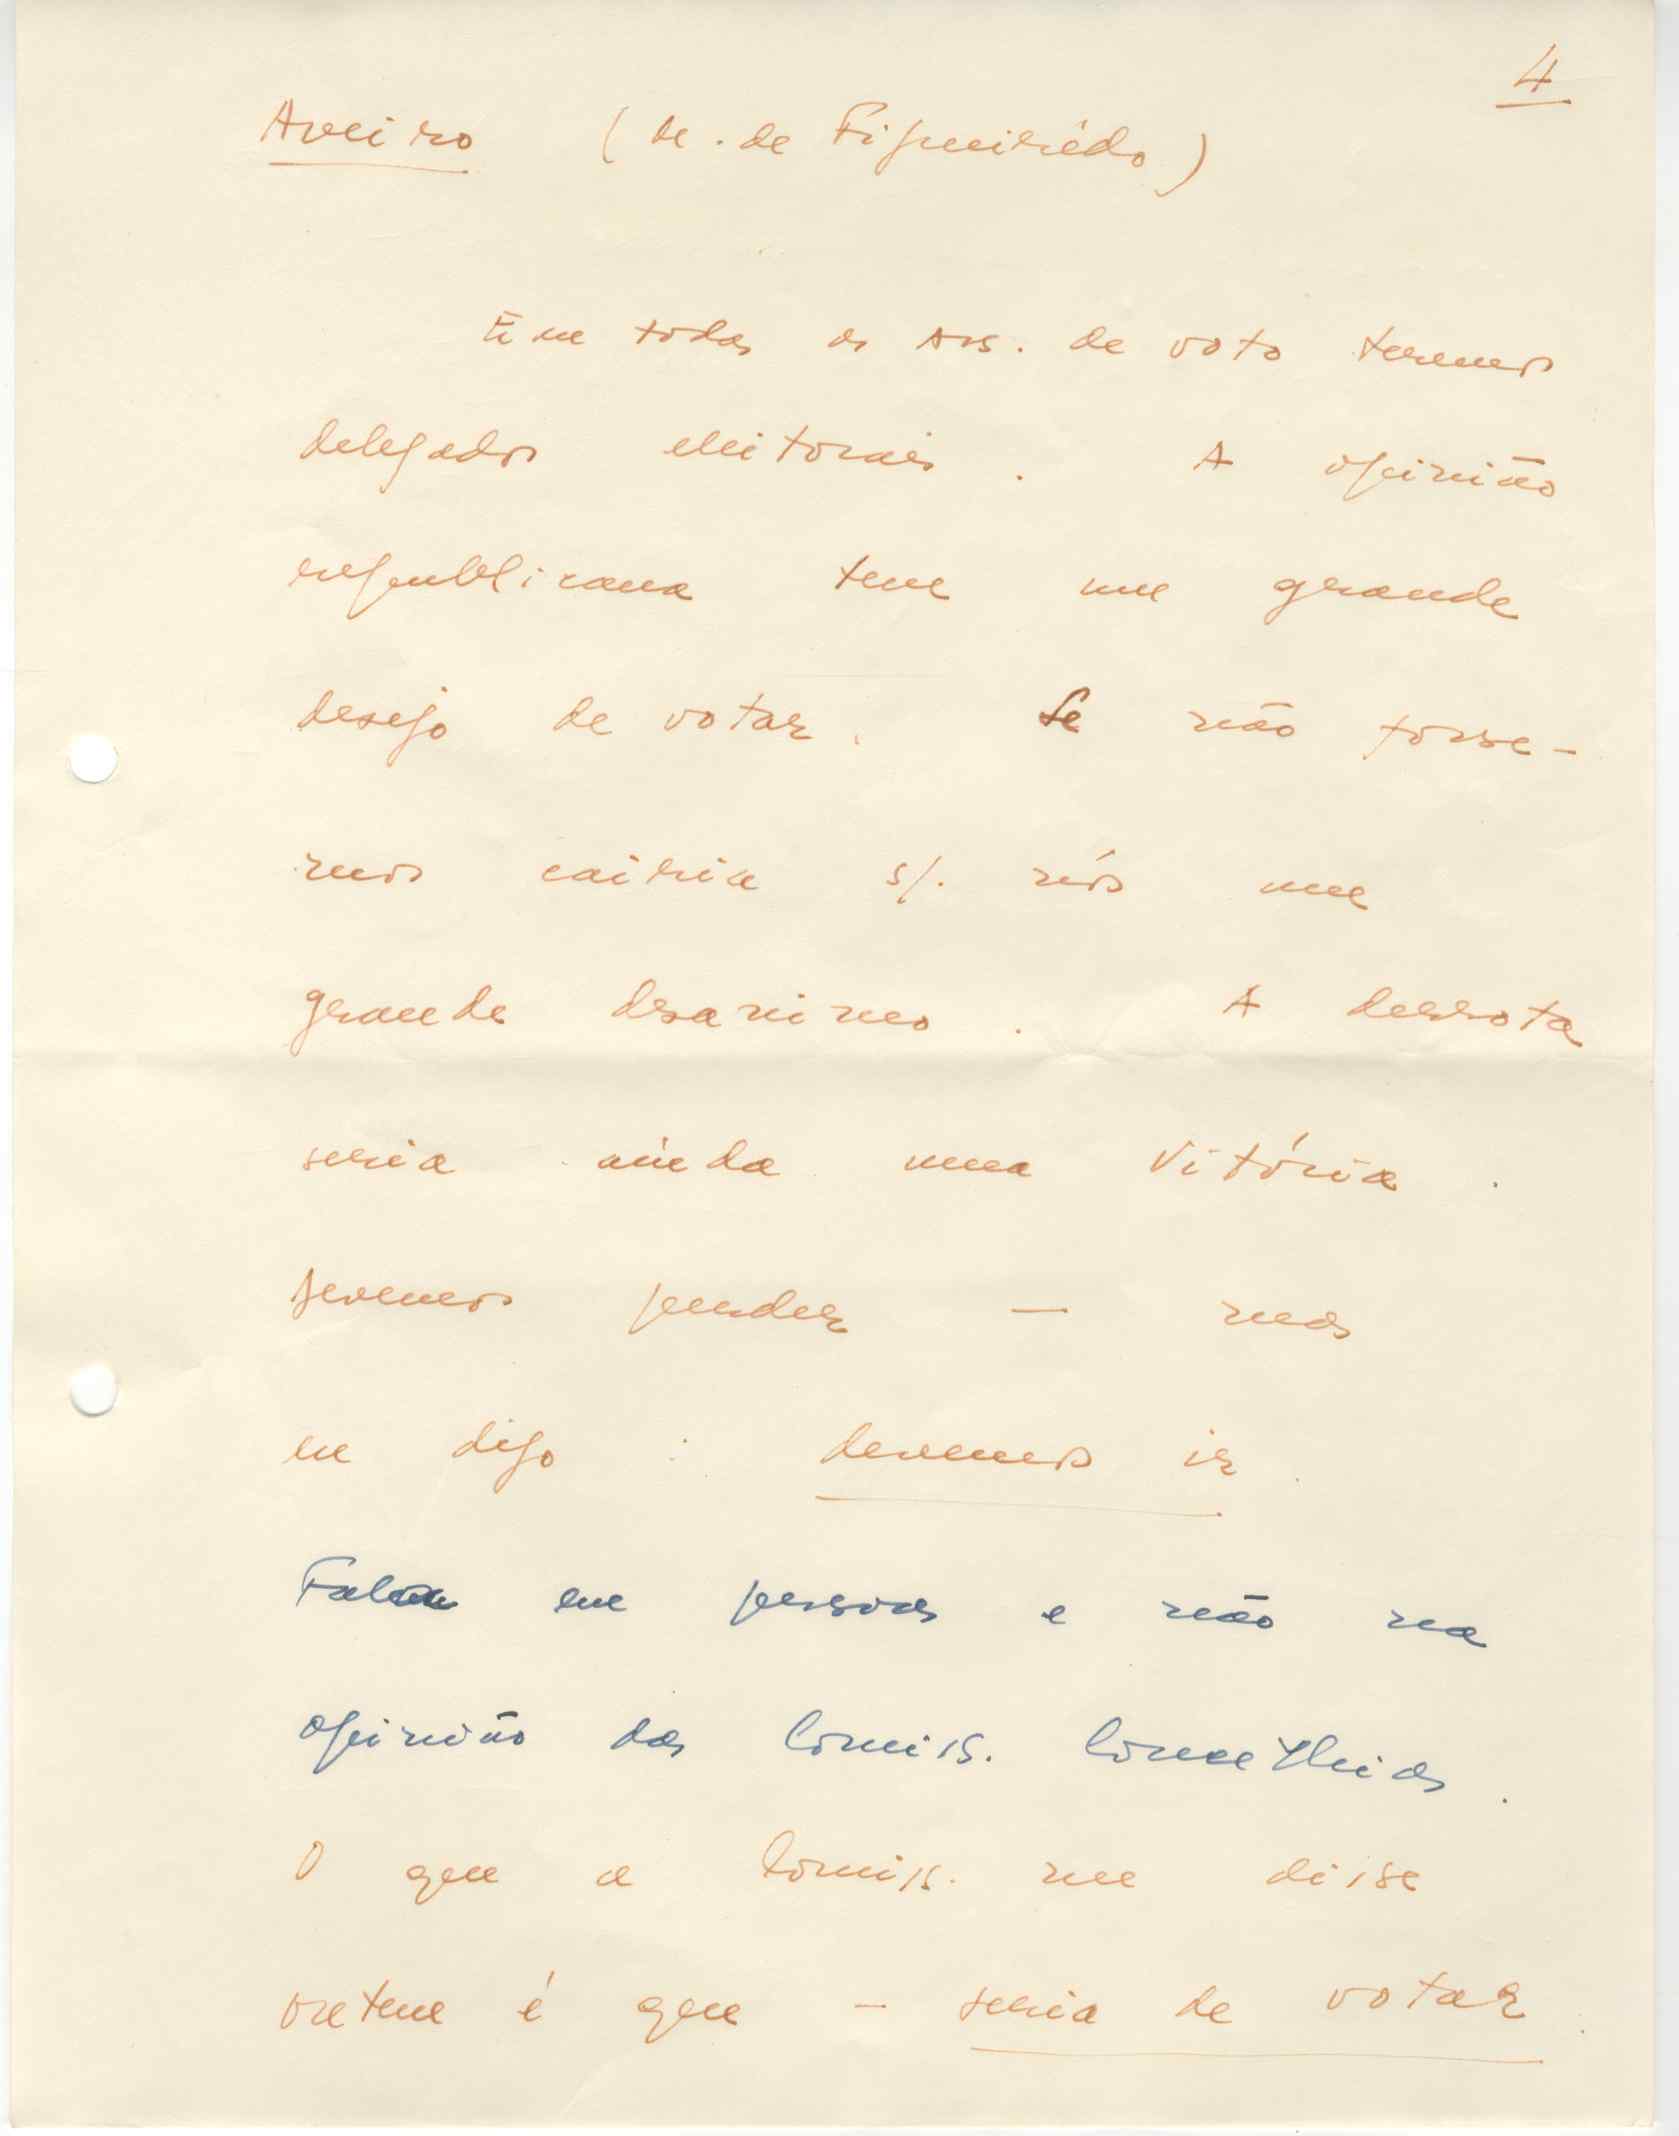 4
Aveiro (M. de Figueirêdo)
Em todas as Ass. de voto teremos
delegados eleitorais. A opinião
republicana tem um grande
desejo de votar. Se não fosse-
mos cairia s/. nós um
grande desanimo. A derrota
seria ainda uma Vitória.
Devemos perder — mas
eu digo: devemos ir.
em pessoas e não na
opinião das Comiss. Concelhias.
O que a Comiss. me disse
ontem é que — seria de votar.